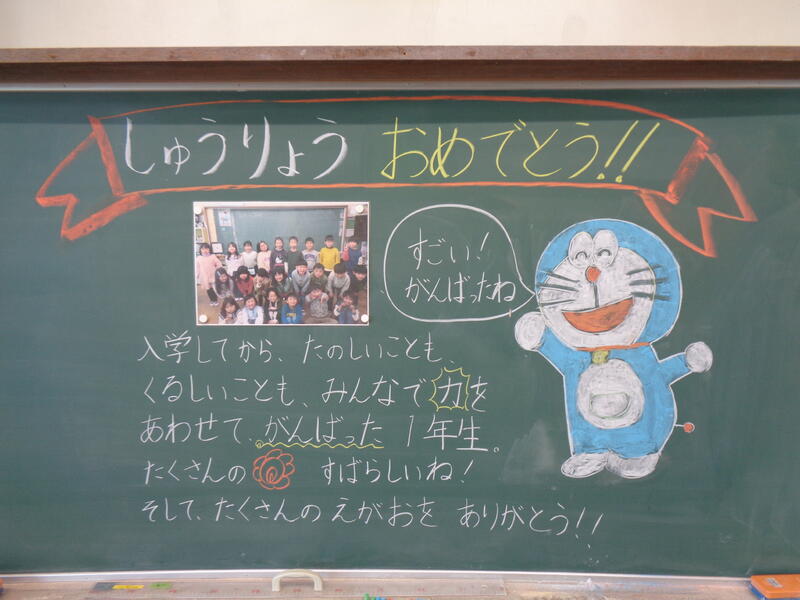 しゅうりょう おめでとう!!
すごい!
がんばったね
入学してから、たのしいことも、
くるしいことも、みんなで力を
あわせて、がんばった1年生。
たくさんの すばらしいね!
そして、たくさんのえがおを ありがとう!!